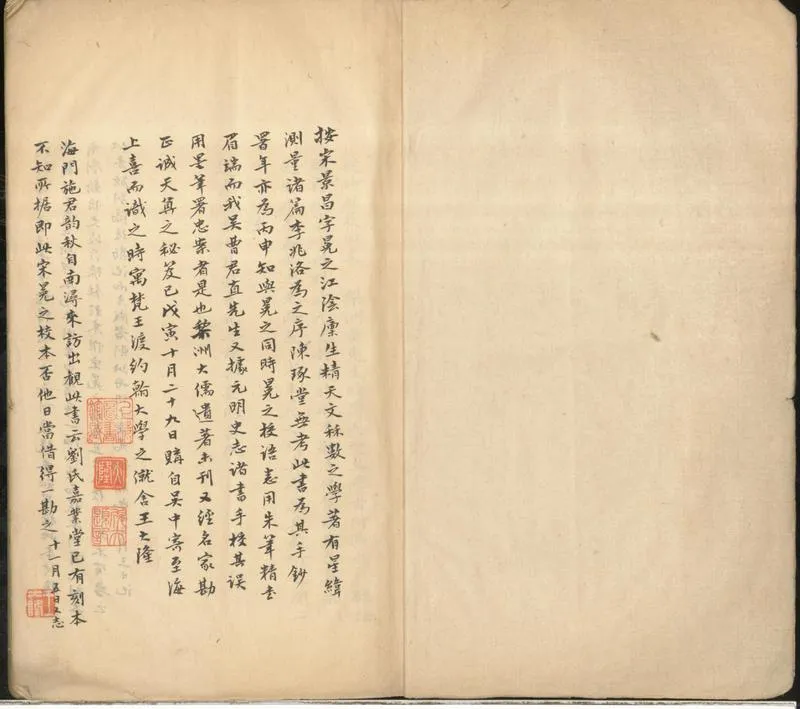 按宋景昌字冕之江陰廩生精天文秝數之學著有星緯
測量諸篇李兆洛為之序陳琢堂無考此書為其手鈔
署年亦為丙申知與冕之同時冕之校語悉用朱筆精書
眉端而我吴曹君直先生又據元明史志諸書手校其誤
用墨筆署忠案者是也黎洲大儒遺著未刊又經名家勘
正誠天算之秘笈已戊寅十月二十九日購自吴中寄至海
上喜而識之時寓梵王渡約翰大學之僦舍王大隆
海門施君韵秋自南潯來訪出觀此書云劉氏嘉業堂已有刻本
不知所据即此宋冕之校本否他日當借得一勘之 十一月五日又志
大隆